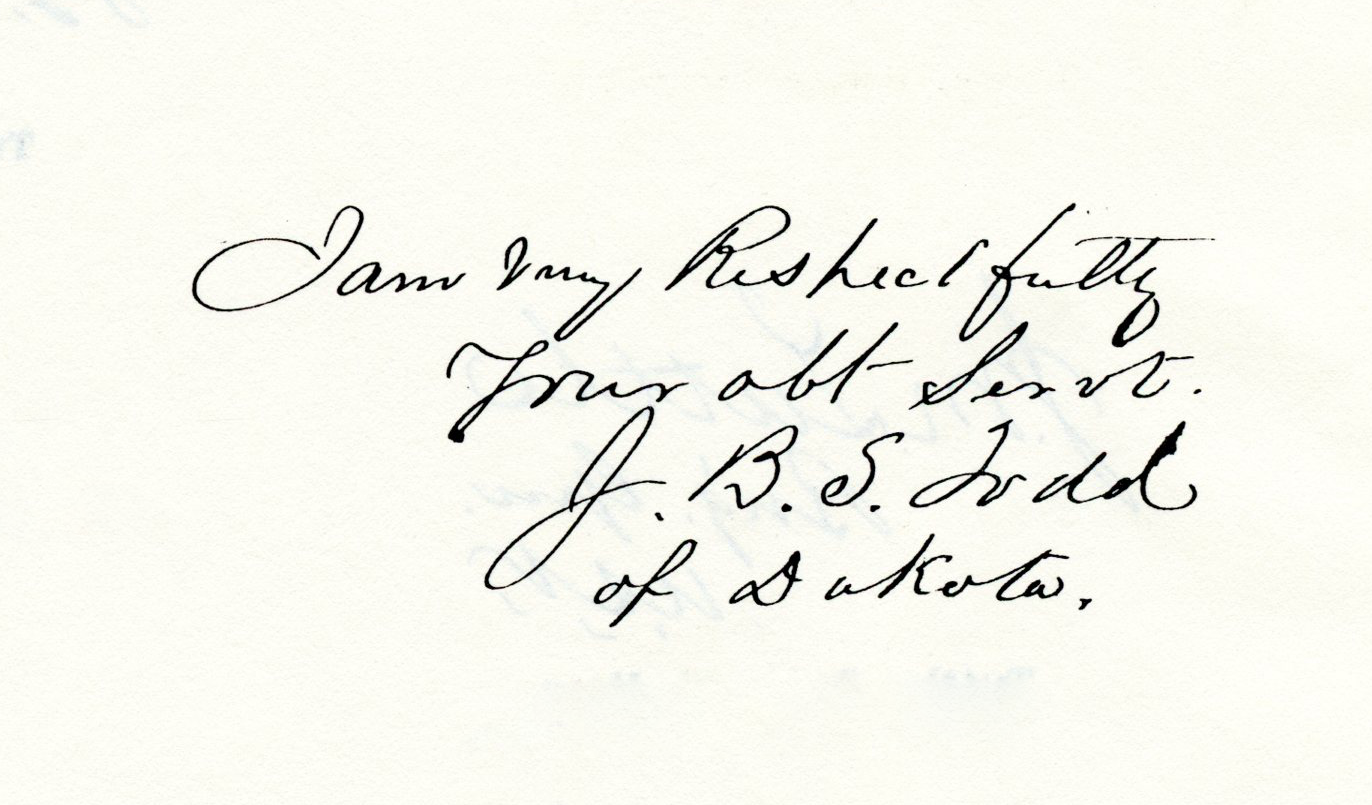 I am very Respectfully
Your obt Servt.
J. B. S. Todd
of Dakota.